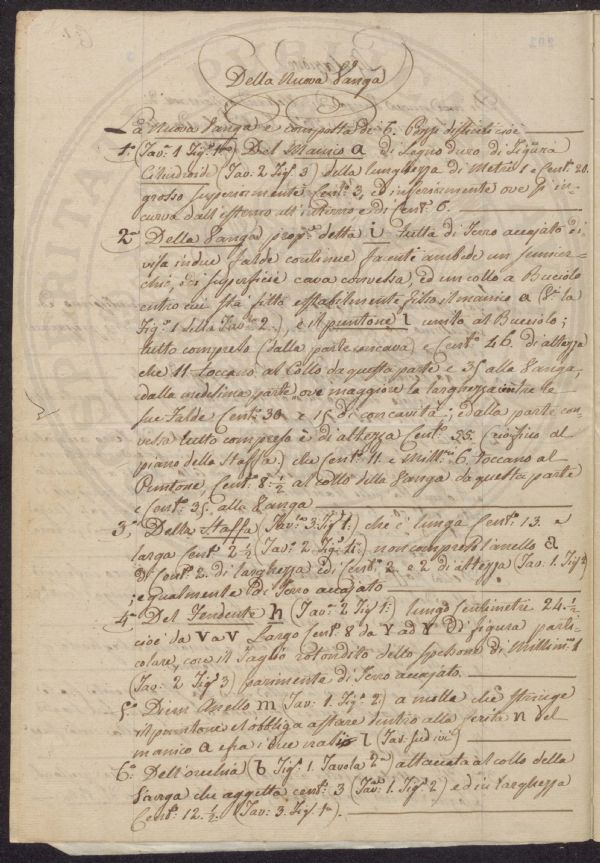 Della nuova Vanga
La nuova Vanga è composta di 6. Pezzi difficili cioè
1.° (Tav.ª 1 Fig.ª 1.ma) Del Manico a di Legno duro di Figura
Cilindroide (Tav. 2 Fig.ª 3) della lunghezza di Metri 1 e Cent.i 20.
grosso superiormente Cent.i 3, ed inferiormente ove s' in-
curva dall' esterno all' interno, è di Cent.i 6.
2.° Della Vanga prop.te detta i tutta di Ferro accajato di-
visa in due falde continue facente ambede un semicer-
chio, e di superficie cava convessa, ed un collo a Bucciolo
entro cui sta fitto il manico a (V.e la
Fig.ª 1 della Tav.ª 2.), e il puntone l unito al Bucciolo;
tutto compreso (dalla parte concava) è Cent.i 46. di altezza
che 11 toccano al Collo da questa parte e 35 alla Vanga,
dalla medesima parte ove maggiore la larghezza entro le
sue Falde Cent.i 30 e 15 di concavità; e dalla parte con-
vessa tutto compreso è di altezza Cent.i 55. (
piano della Staffa) che Cent.i 11. e Millim.i 6. toccano al
Puntone, Cent.i 8. ½ al collo della Vanga da questa parte
e Cent.i 35 alla Vanga
3.° Della Staffa (Tav.ª 3. Fig.ª 1.) che è lunga Cent.i 13. e
larga Cent.i 2 ½ (Tav.ª 2. Fig.ª 1.) non compreso l'anello a
di Cent.i 2. di larghezza e di Cent.i 2. e 2 di altezza (Tav. 1. Fig.ª 2)
; egualmente di Ferro accajato
4.° Del Fendente h (Tav.ª 2 Fig.ª 1.) lungo Centimetri 24. ½
cioè da v a v Largo Cent.i 8 da γ ad γ di figura parti-
colare, con il Taglio rotondito dello spessore di Millim.i 1
(Tav. 2 Fig.ª 3) parimente di Ferro accajato.
5.° Di un Anello m (Tav. 1. Fig.ª 2) a molla che stringe
il puntone e l'obbliga a stare dentro alla ferita n del
manico a e fra i due l (Tav. sud.)
6.° Dell' orechia (b Fig.ª 1. Tavola 2.da) attaccata al collo della
Vanga che aggetta cent.i 3 (Tav. 1. Fig.ª 2) ed in larghezza
Cent.i 12. ½. (Tav. 3. Fig.ª 1.ª).